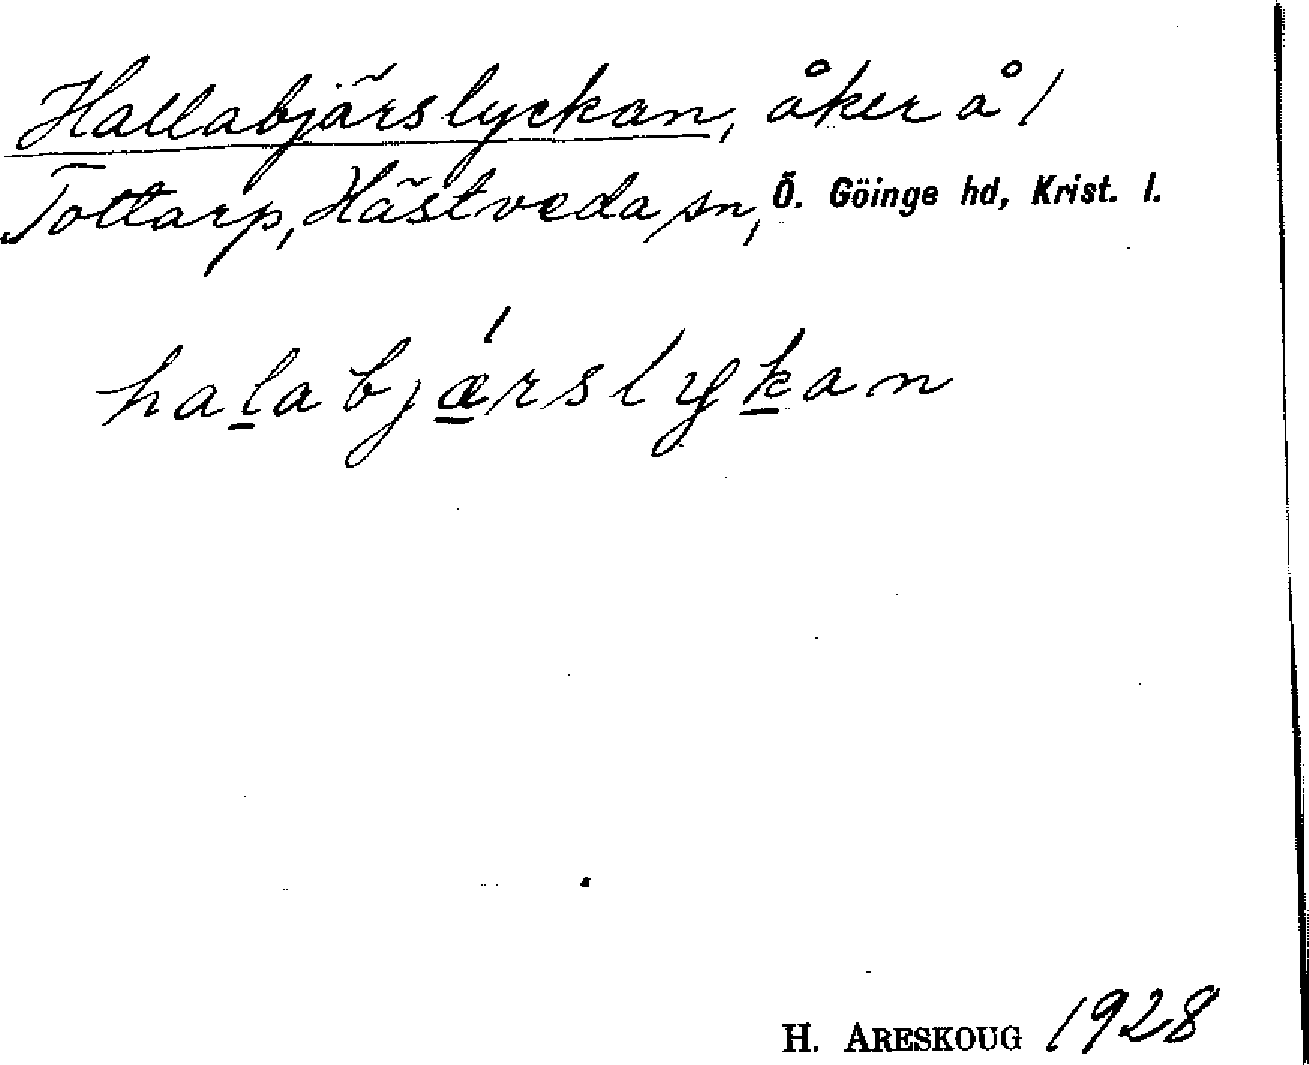 Hallabjärslyckan, åker å 1
Tottarp, Hästveda sn, Ö. Göinge hd, Krist. l.
halabjǽrslykan
H. ARESKOUG 1928